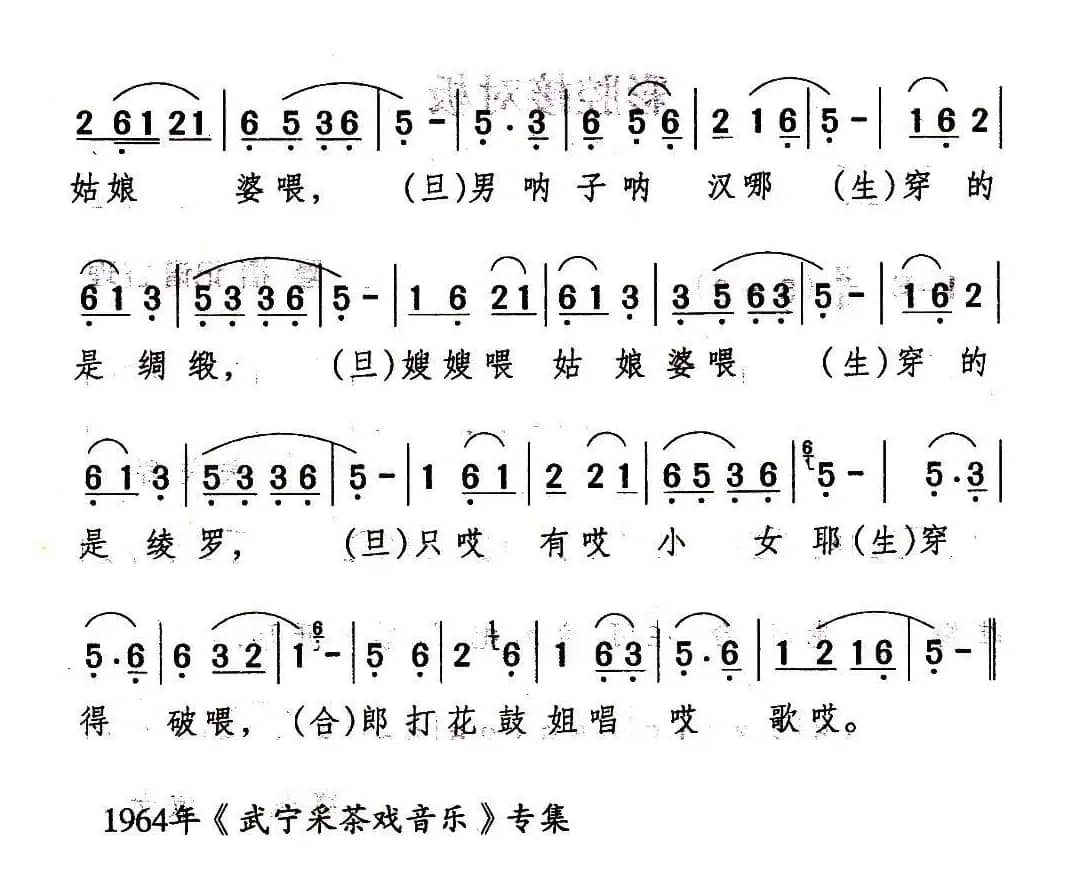 2 6 1 2 1 | 6 5 3 6 | 5 - | 5 · 3 | 6 5 6 | 2 1 6 | 5 - | 1 6 2 |
姑娘 婆喂， (旦)男 呐 子呐 汉哪 (生)穿 的
6 1 3 | 5 3 3 6 | 5 - | 1 6 2 1 | 6 1 3 | 3 5 6 3 | 5 - | 1 6 2 |
是 绸 缎， (旦)嫂嫂喂 姑 娘婆喂 (生)穿 的
6 1 3 | 5 3 3 6 | 5 - | 1 6 1 | 2 2 1 | 6 5 3 6 | 6 5 - | 5 · 3 |
是 绫 罗， (旦)只哎 有哎 小 女 耶(生)穿
5 · 6 | 6 3 2 | 1 6 - | 5 6 | 2 1 6 | 1 6 3 | 5 · 6 | 1 2 1 6 | 5 - ‖
得 破喂， (合)郎 打 花 鼓 姐唱 哎 歌哎。
1964年《武宁采茶戏音乐》专集